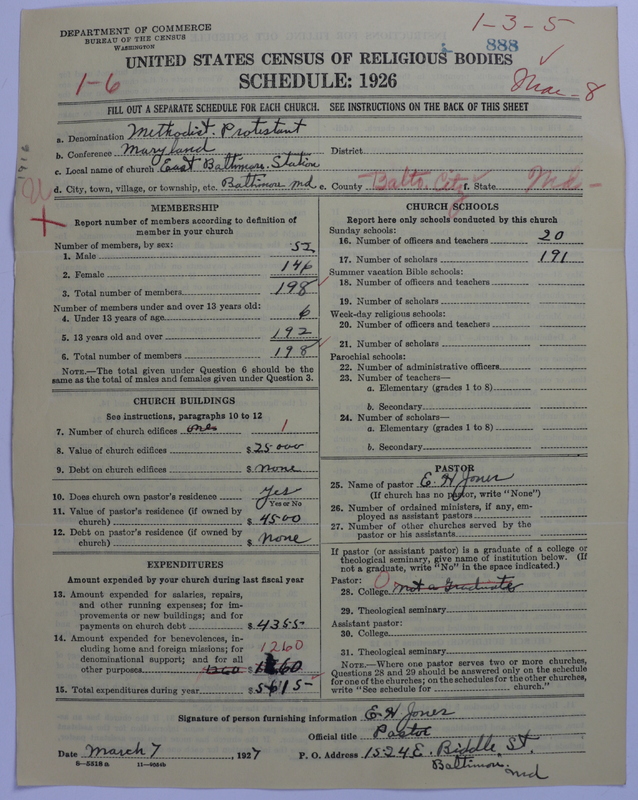 1-3-5
DEPARTMENT OF COMMERCE
BUREAU OF THE CENSUS
WASHINGTON
888
UNITED STATES CENSUS OF RELIGIOUS BODIES
1-6
SCHEDULE: 1926
Mar-8
FILL OUT A SEPARATE SCHEDULE FOR EACH CHURCH. SEE INSTRUCTIONS ON THE BACK OF THIS SHEET
a. Denomination Methodist Protestant
b. Conference Maryland District
c. Local name of church East Baltimore Station
d. City, town, village, or township, etc. Baltimore Md e. County Balto. City f. State Md-
MEMBERSHIP
Report number of members according to definition of
member in your church
Number of members, by sex:
1. Male 52
2. Female 146
3. Total number of members 198
Number of members under and over 13 years old:
4. Under 13 years of age 6
5. 13 years old and over 192
6. Total number of members 198
NOTE.—The total given under Question 6 should be
same as the total of males and females given under Question 3.
CHURCH BUILDINGS
See instructions, paragraphs 10 to 12
7. Number of church edifices 1
8. Value of church edifices $25000
9. Debt on church edifices $None
10. Does church own pastor's residence Yes
Yes or No
11. Value of pastor's residence (if owned by
church) $4500
12. Debt on pastor's residence (if owned by
church) $None
EXPENDITURES
Amount expended by your church during last fiscal year
13. Amount expended for salaries, repairs,
and other running expenses; for im-
provements or new buildings; and for
payments on church debt $4355
14. Amount expended for benevolences, in-
cluding home and foreign missions; for 1260
denominational support; and for all
other purposes 1260 1260
15. Total expenditures during year $5615-
CHURCH SCHOOLS
Report here only schools conducted by this church
Sunday schools:
16. Number of officers and teachers 20
17. Number of scholars 191
Summer vacation Bible schools:
18. Number of officers and teachers
19. Number of scholars
Week-day religious schools:
20. Number of officers and teachers
21. Number of scholars
Parochial schools:
22. Number of administrative officers
23. Number of teachers—
a. Elementary (grades 1 to 8)
b. Secondary
24. Number of scholars—
a. Elementary (grades 1 to 8)
b. Secondary
PASTOR
25. Name of pastor E. H Jones
(If church has no pastor, write "None")
26. Number of ordained ministers, if any, em-
ployed as assistant pastors
27. Number of other churches served by the
pastor or his assistants
If pastor (or assistant pastor) is a graduate of a college or
theological seminary, give name of institution below. (If
not a graduate, write "No" in the space indicated.)
Pastor: O
28. College Not a Graduate
29. Theological seminary
Assistant pastor:
30. College
31. Theological seminary
NOTE.—Where one pastor serves two or more churches,
Questions 28 and 29 should be answered only on the schedule
for one of the churches; on the schedules for the other churches,
write "See schedule for church."
Signature of person furnishing information E H Jones
Official title Pastor
Date March 7, 1927 P. O. Address 1524 E. Biddle St.
Baltimore Md
8—5518a 11—9554b